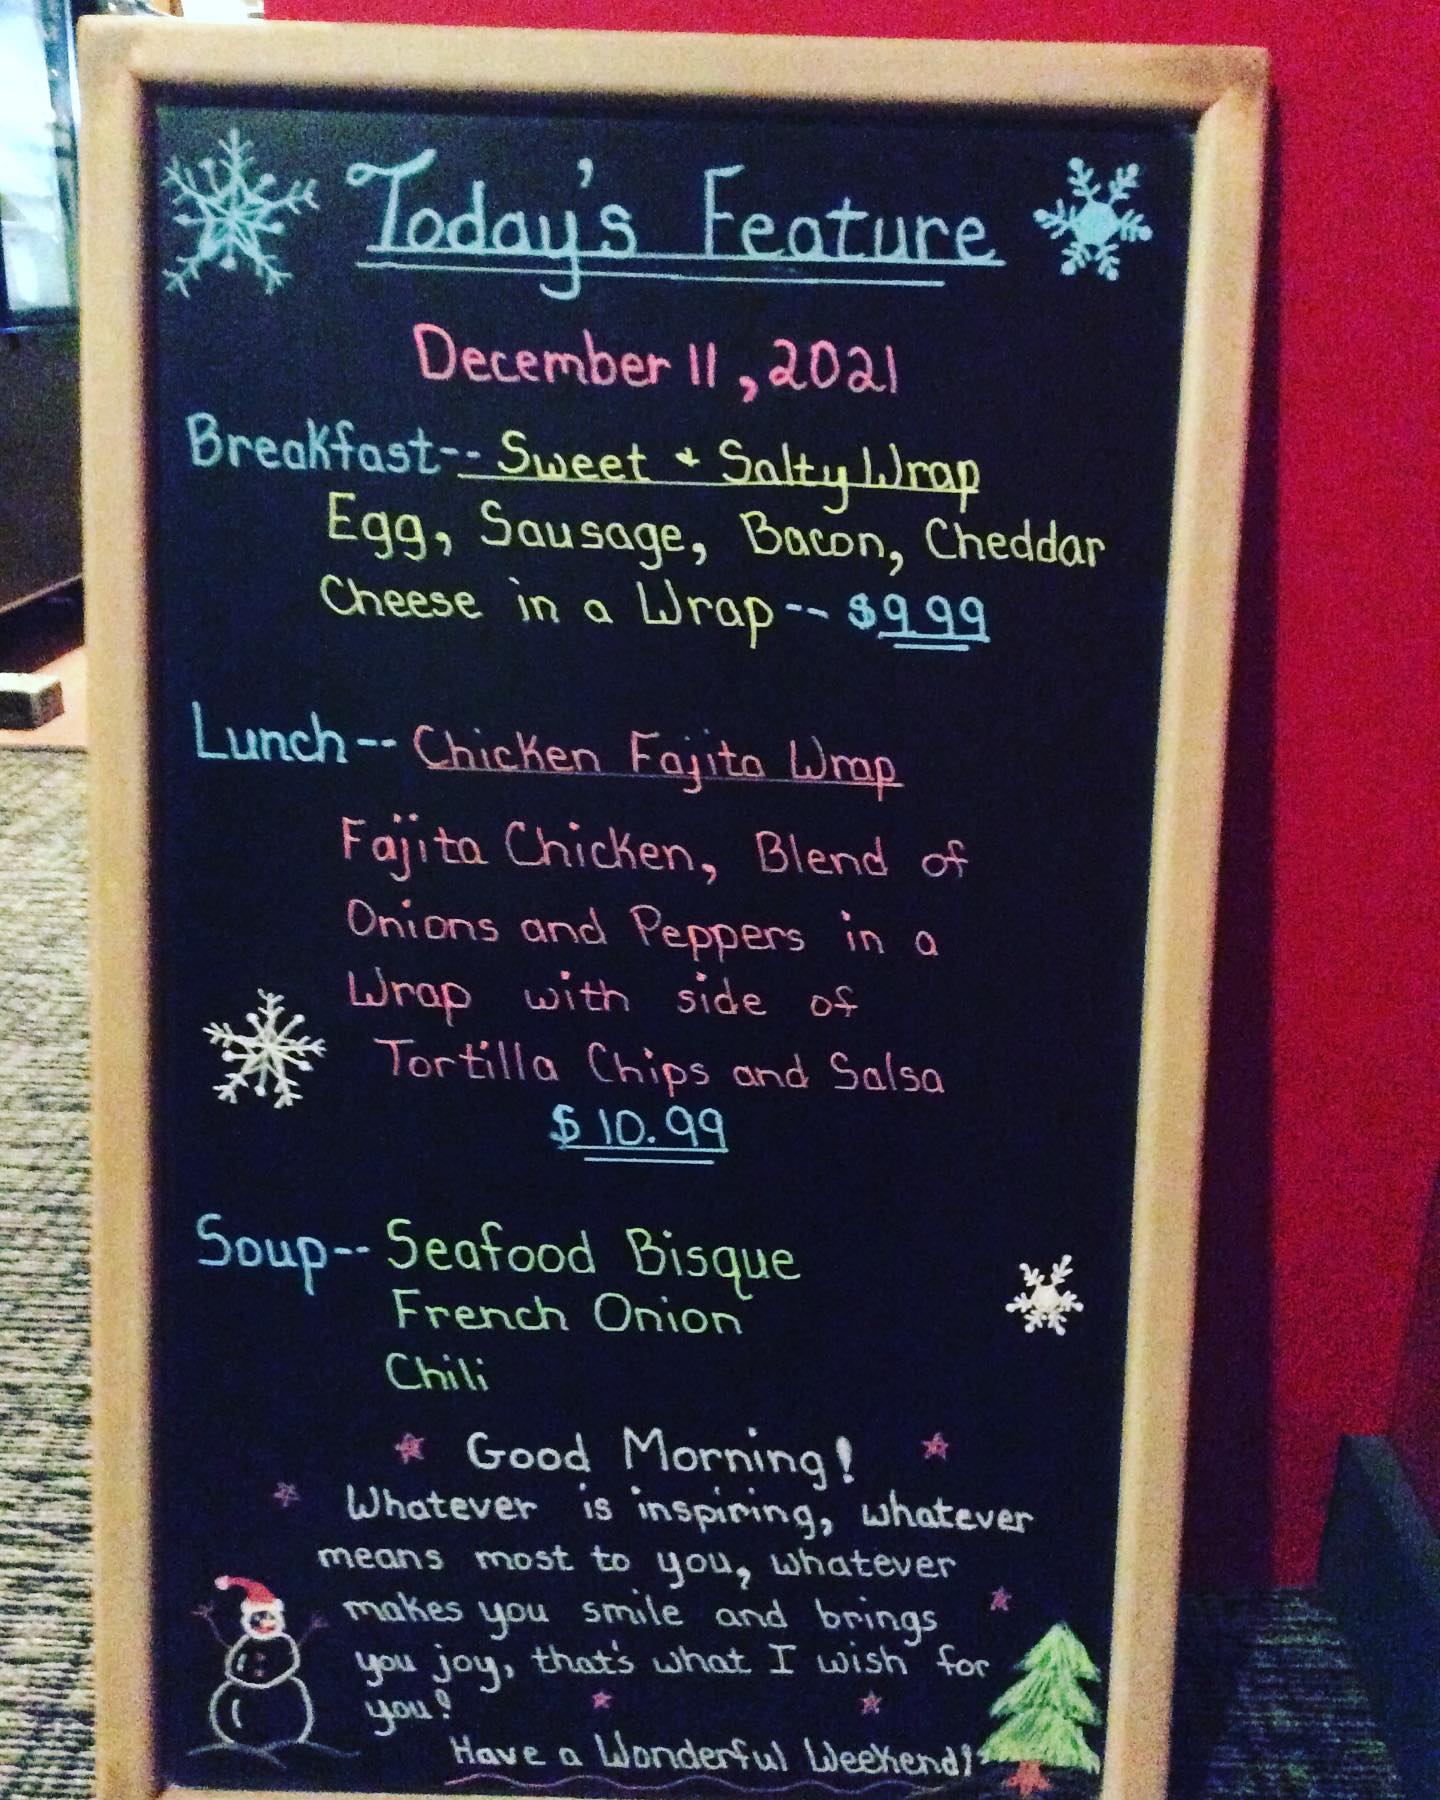 Today's Feature
December 11, 2021
Breakfast-- Sweet + Salty Wrap
Egg, Sausage, Bacon, Cheddar
Cheese in a Wrap-- $9.99
Lunch-- Chicken Fajita Wrap
Fajita Chicken, Blend of
Onions and Peppers in a
Wrap with side of
Tortilla Chips and Salsa
$10.99
Soup-- Seafood Bisque
French Onion
Chili
Good Morning!
Whatever is inspiring, whatever
means most to you, whatever
makes you smile and brings
you joy, that's what I wish for
you!
Have a Wonderful Weekend!